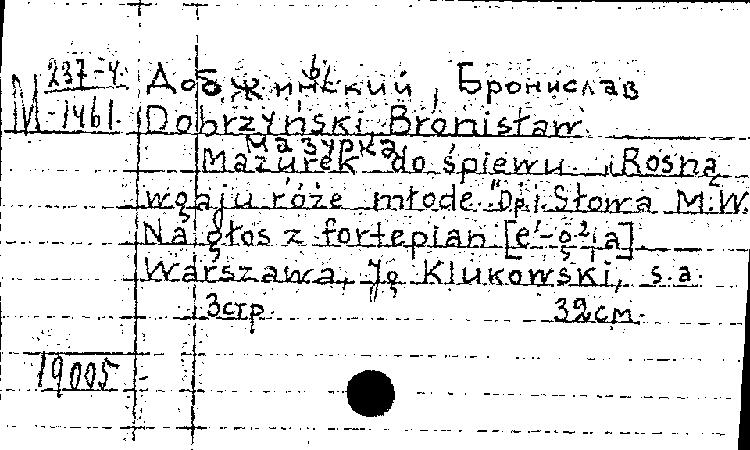 237-4.
М-1461.
Добжиньский, Бронислав
Dobrzyński, Bronisław
мазурка
Mazurek do śpiewu „Rosną
w gaju róże młode." Op. 1. Słowa M.W.
Na głos z fortepian
Warszawa, Klukowski, s.a.
3 стр. 32 см.
19005